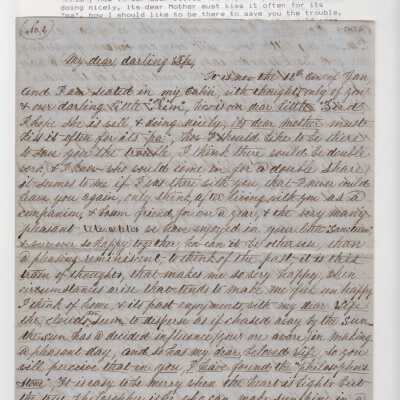 doing nicely, its dear Mother must kiss it often for its
"pa", how I should like to be there to save you the trouble,
(No. 2)
My dear darling Wife,
To is now the 12th day of Jan
and I am seated in my Cabin with thoughts only of you
& our darling little how is our dear little
I hope she is well & doing nicely, its dear Mother must
kiss it often for its "pa", how I should like to be there
to save you the trouble, I think there would be double
work, & I know who would come in for a double share
it seems to me if I was there with you, that I never could
leave you again, only think, after living with you as a
companion, & bosom friend, for over a year, & the very many
pleasant we have enjoyed in your little Sanctum
& so happy together, how can it be otherwise, than
a pleasing reminiscent, to think of the past, it is this
train of thoughts, that makes me so very happy, when
circumstances arise that tends to make me feel unhappy
I think of home & its past enjoyments, with my dear Wife
the clouds seem to disperse as if chased away by the Sun,
the sun has a decided influence, you are aware, in making
a pleasant day, and so has my dear, beloved wife, so you
will perceive that in you, I have found the "philosopher's
stone". It is easy to be merry when the heart is light, but
the true philosopher is he who can make sunshine in a